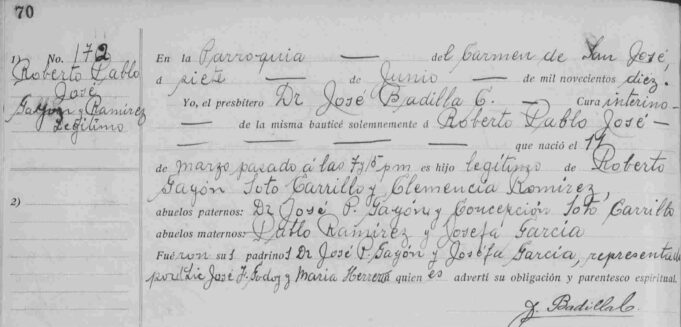 70
1) No. 172
Roberto Pablo
José
Gayón y Ramirez
Legitimo
2)
En la Parroquia — del Carmen de San José,
á siete — de Junio — de mil novecientos diez.
Yo, el presbítero Dr José Badilla C. — Cura interino
— de la misma bauticé solemnemente á Roberto Pablo José —
— — — — — que nació el 17
de marzo pasado á las 7 pm es hijo legitimo de Roberto
Gayón Soto Carrillo y Clemencia Ramirez,
abuelos paternos: Dr José P. Gayón y Concepción Soto Carrillo
abuelos maternos: Pablo Ramirez y Josefa García
Fueron sus padrinos Dr José P. Gayón y Josefa García, representada
por Lic José F. Godoy y Maria Herrera quien es advertí su obligación y parentesco espiritual.
J. Badilla C.